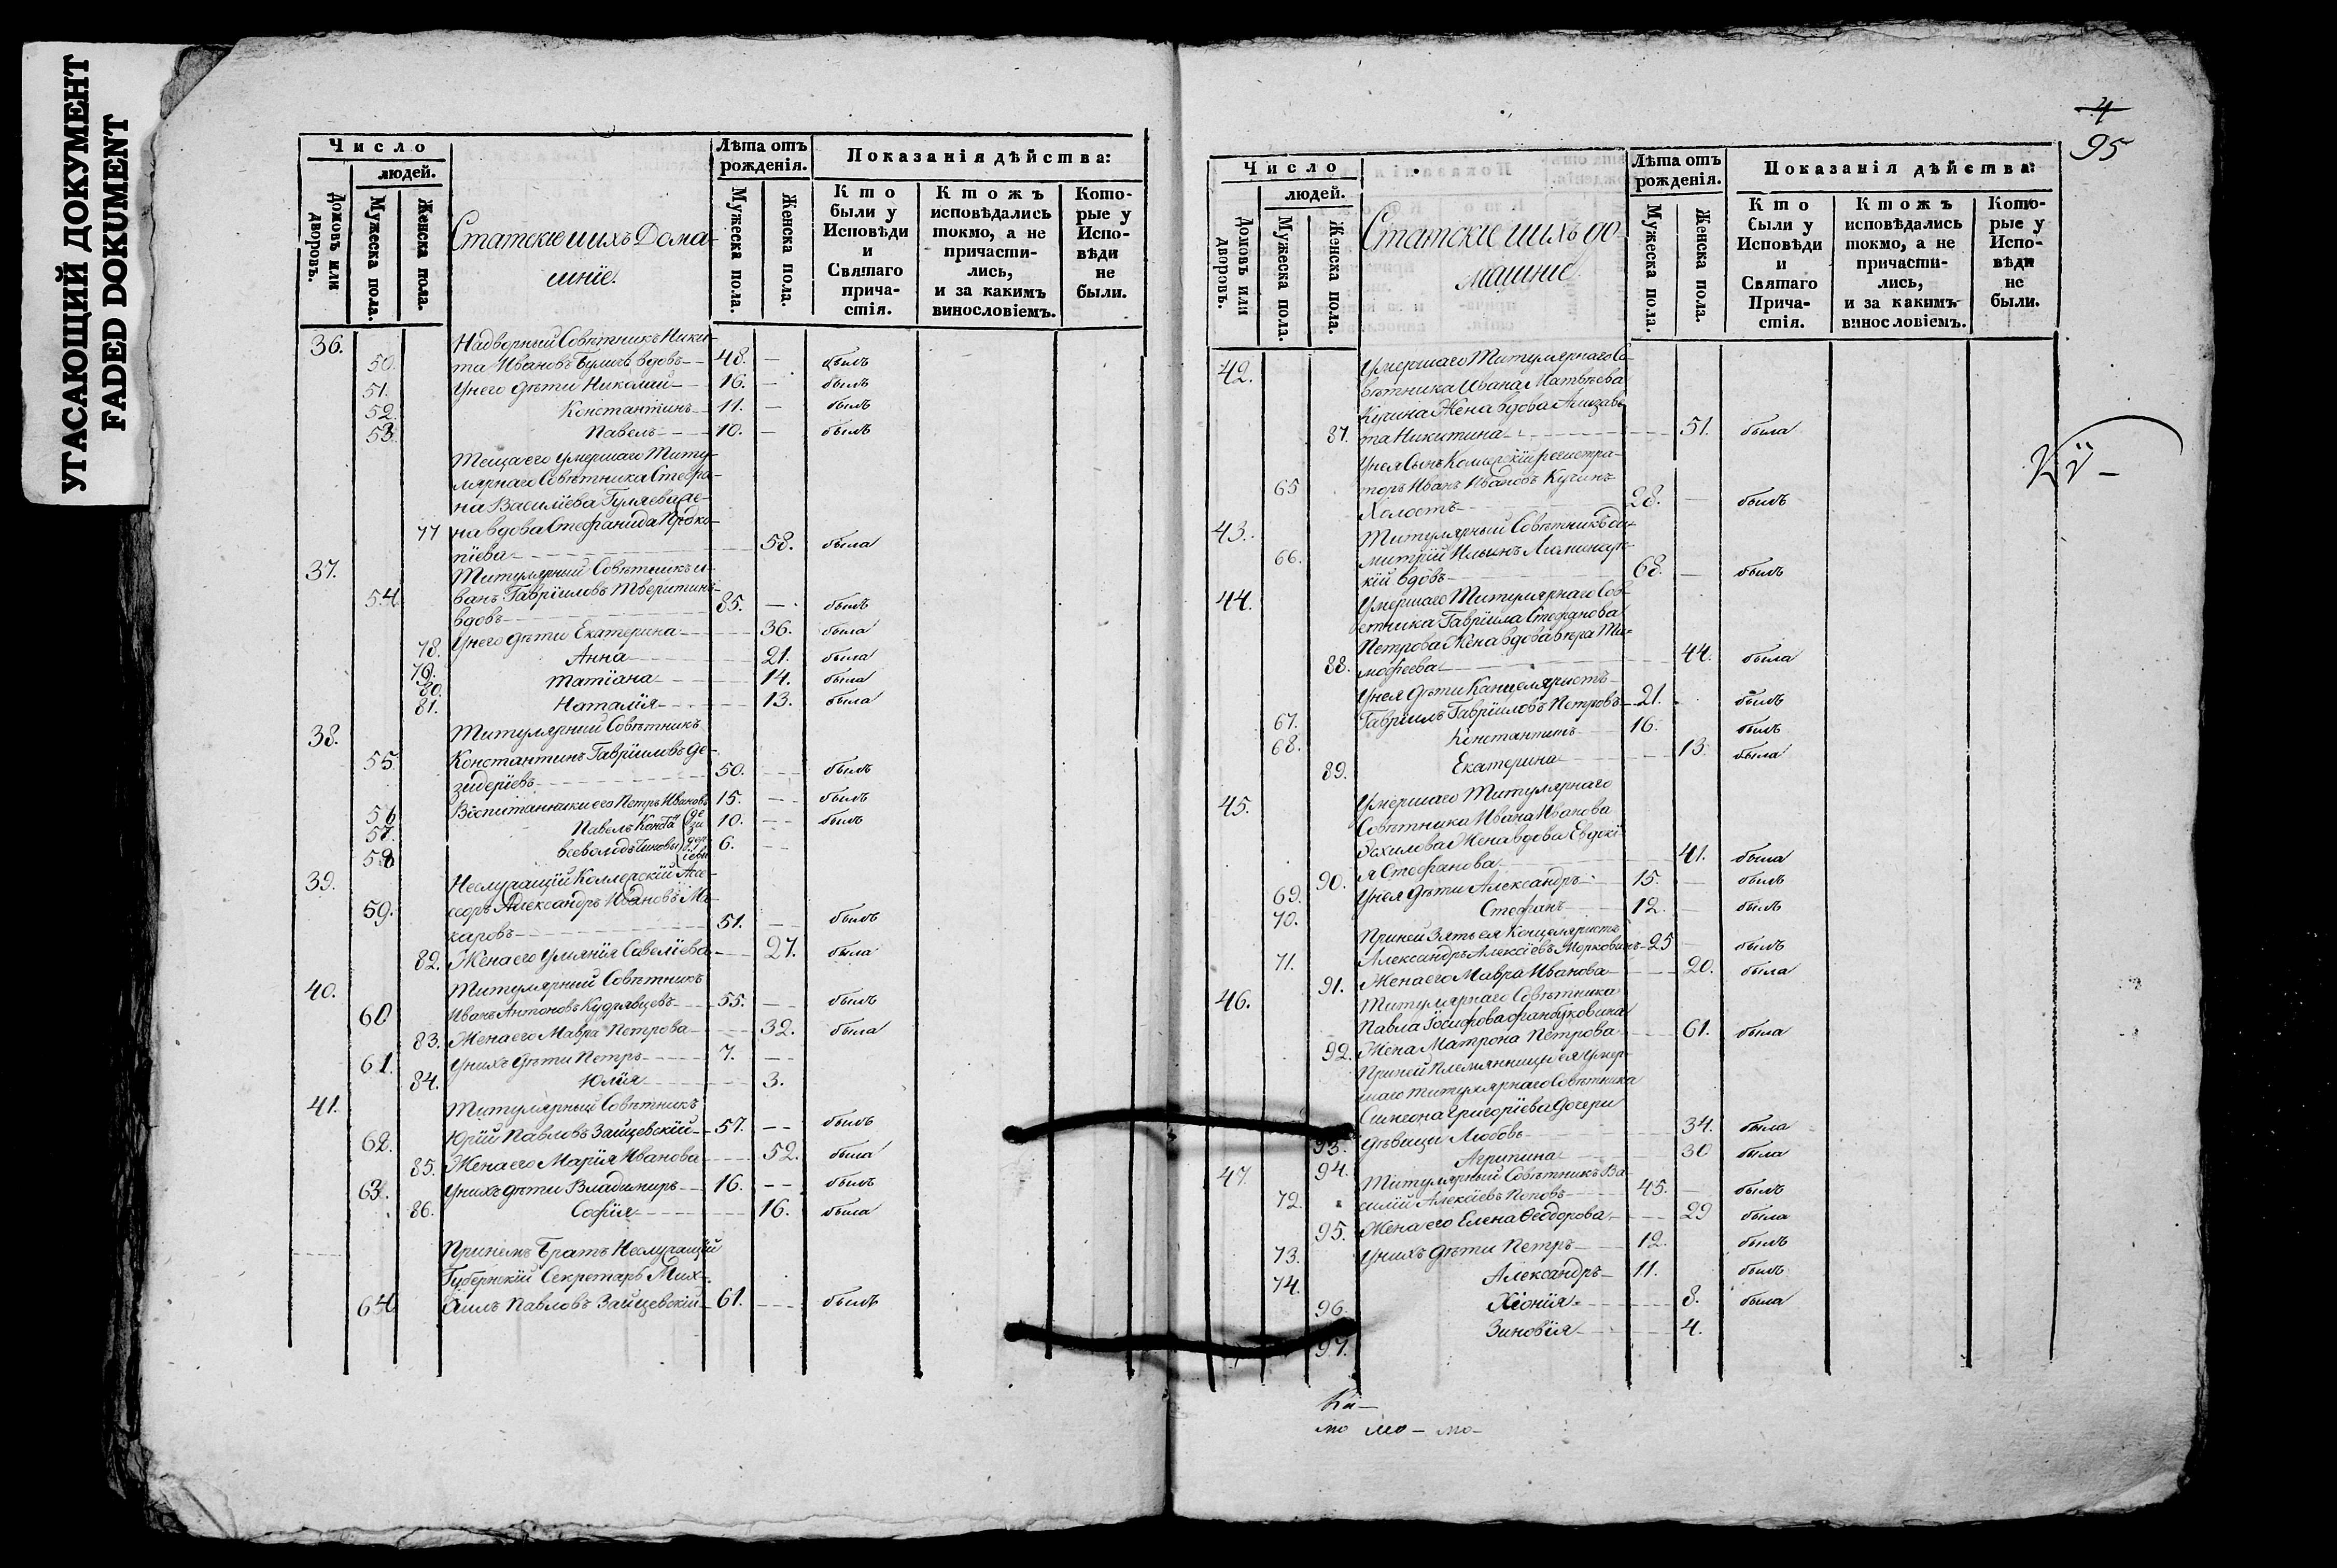 УГАСАЮЩИЙ ДОКУМЕНТ
FADED DOKUMENT
Число
людей.
Домовъ или дворовъ.
Мужеска пола.
Женска пола.
Статскіе и ихъ Дома-
шніе.
Лѣта отъ рожденія.
Мужеска пола.
Женска пола.
Показанія дѣйства:
Кто были у Исповѣди и Святаго причастія.
Ктожъ исповѣдались токмо, а не причасти- лись, и за какимъ винословіемъ.
Кото- рые у Испо- вѣди не были.
36. Надворный Совѣтникъ Ники-
50. та Ивановъ вдовъ 48. — былъ
51. У него дѣти Николай 16. — былъ
52. Константинъ 11. — былъ
53. Павелъ 10. — былъ
Теща его умершаго Титу-
лярнаго Совѣтника Стефа-
на Василіева
77 на вдова Стефанида Проко-
піева 58. была
37. Титулярный Совѣтникъ И-
54. ванъ Гавріиловъ Тверитинъ
вдовъ 85. — былъ
78. У него дѣти Екатерина 36. была
79. Анна 21. была
80. Татіана 14. была
81. Наталія 13. была
38. Титулярный Совѣтникъ
55. Константинъ Гавріиловъ Де-
зидеріевъ 50. былъ
56 Воспитанники его Петръ Ивановъ 15. — былъ
57. Павелъ 10. — былъ
58 Всеволодъ 6. —
39. Неслужащій Коллежскій Ассе-
59. соръ Александръ Ивановъ Ма-
каровъ 51. — былъ
82. Жена его Уліянія Савеліева 27. была
40. Титулярный Совѣтникъ
60 Иванъ Антоновъ Кудрявцевъ 55. — былъ
83. Жена его Мавра Петрова 32. была
61. У нихъ дѣти Петръ 7. —
84. Юлія 3.
41. Титулярный Совѣтникъ
62. Юрій Павловъ Зайцевскій 57. — былъ
85. Жена его Марія Иванова 52. была
63. У нихъ дѣти Владимиръ 16. — былъ
86. Софія 16. была
При немъ Братъ Неслужащій
Губернскій Секретарь Мих-
64 аилъ Павловъ Зайцевскій 61. былъ
4
95
Число
людей.
Домовъ или дворовъ.
Мужеска пола.
Женска пола.
Статскіе и ихъ до-
машніе
Лѣта отъ рожденія.
Мужеска пола.
Женска пола.
Показанія дѣйства:
Кто были у Исповѣди и Святаго Прича- стія.
Ктожъ исповѣдались токмо, а не причасти- лись, и за какимъ винословіемъ.
Кото- рые у Испо- вѣди не были.
42. Умершаго Титулярнаго Со-
вѣтника Ивана Матвѣева
Кучина Жена вдова Елизаве
87. та Никитина 51. была
У нея Сынъ Коллежскій регистра-
65 торъ Иванъ Ивановъ Кучинъ
Холостъ 28. — былъ
43. Титулярный Совѣтникъ Ди-
66. митрій Ильинъ
кій вдовъ 68. — былъ
44. Умершаго Титулярнаго Сов-
ѣтника Гавріила Стефанова
Петрова Жена вдова Вѣра Ти-
88. мофеева 44. была
У нея дѣти Канцеляристъ
67. Гавріилъ Гавріиловъ Петровъ 21. былъ
68. Константинъ 16. былъ
89. Екатерина 13. была
45. Умершаго Титулярнаго
Совѣтника Ивана Иванова
Жена вдова Евдокі
90. я Стефанова 41. была
69. У нея дѣти Александръ 15. — былъ
70. Стефанъ 12. — былъ
При ней Зять ея Канцеляристъ
71. Александръ Алексіевъ Морковинъ 25 былъ
91. Жена его Мавра Иванова 20. была
46. Титулярнаго Совѣтника
Павла Іосифова
92. Жена Матрона Петрова 61. была
При ней племянницы ея умер-
шаго титулярнаго Совѣтника
Симеона Григоріева дочери
93. дѣвицы Любовь 34. была
94. Агрипина 30 была
47. Титулярный Совѣтникъ Ва-
72. силій Алексіевъ Поповъ 45. — былъ
95. Жена его Елена Ѳеодорова 29 была
73. У нихъ дѣти Петръ 12. былъ
74. Александръ 11. былъ
96. Хіонія 8. была
97. Зиновія 4.